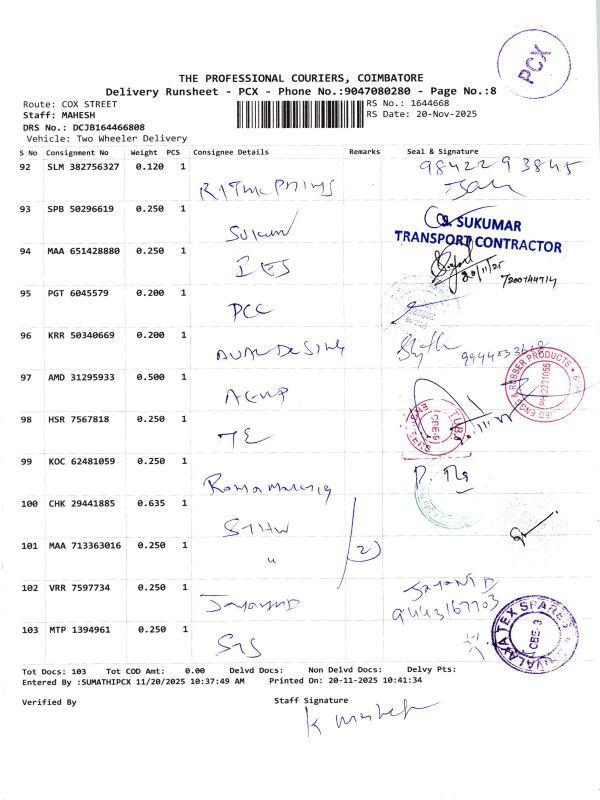 PCX
THE PROFESSIONAL COURIERS, COIMBATORE
Delivery Runsheet - PCX - Phone No.:9047080280 - Page No.:8
Route: COX STREET
RS No.: 1644668
Staff: MAHESH
RS Date: 20-Nov-2025
DRS No.: DCJB164466808
Vehicle: Two Wheeler Delivery
S No Consignment No Weight PCS Consignee Details Remarks Seal & Signature
92 SLM 382756327 0.120 1
98422 93845
93 SPB 50296619 0.250 1
Sukum
G. SUKUMAR
TRANSPORT CONTRACTOR
94 MAA 651428880 0.250 1
20/11/25
7200744714
95 PGT 6045579 0.200 1
PCC
96 KRR 50340669 0.200 1
97 AMD 31295933 0.500 1
98 HSR 7567818 0.250 1
TE
99 KOC 62481059 0.250 1
100 CHK 29441885 0.635 1
101 MAA 713363016 0.250 1
"
2
102 VRR 7597734 0.250 1
9443167703
103 MTP 1394961 0.250 1
SIS
SHIVALAYA TEX SPARES
CBE-3
Tot Docs: 103 Tot COD Amt: 0.00 Delvd Docs: Non Delvd Docs: Delvy Pts:
Entered By :SUMATHIPCX 11/20/2025 10:37:49 AM Printed On: 20-11-2025 10:41:34
Verified By
Staff Signature
K Mahesh